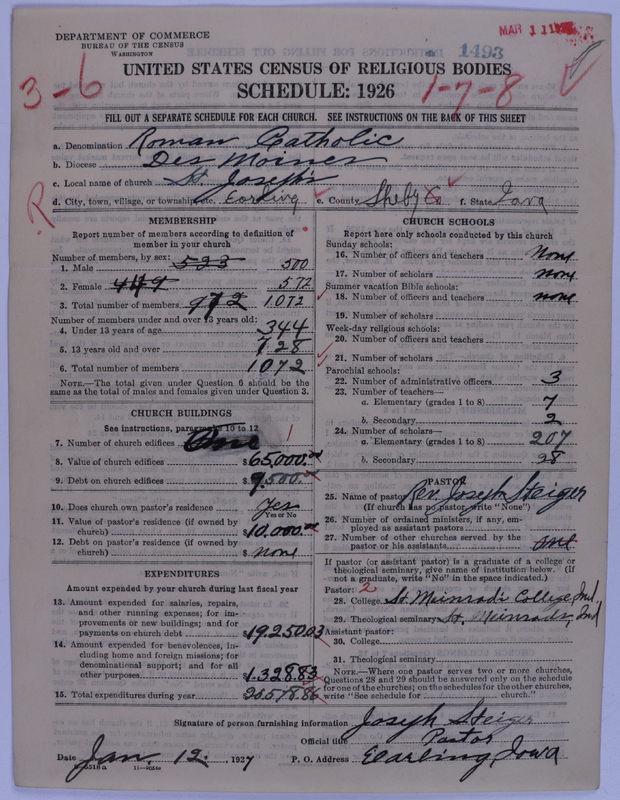 DEPARTMENT OF COMMERCE
BUREAU OF THE CENSUS
WASHINGTON
1493
MAR 11
UNITED STATES CENSUS OF RELIGIOUS BODIES
SCHEDULE: 1926
3-6
1-7-8
FILL OUT A SEPARATE SCHEDULE FOR EACH CHURCH. SEE INSTRUCTIONS ON THE BACK OF THIS SHEET
a. Denomination Roman Catholic
b. Diocese Des Moines
c. Local name of church St. Joseph's
d. City, town, village, or township, etc. Earling e. County Shelby Co. f. State Iowa
R
MEMBERSHIP
Report number of members according to definition of
member in your church
Number of members, by sex:
1. Male 523 500
2. Female 449 572
3. Total number of members 972 1072
Number of members under and over 13 years old:
4. Under 13 years of age 344
5. 13 years old and over 728
6. Total number of members 1072
NOTE.—The total given under Question 6 should be the
same as the total of males and females given under Question 3.
CHURCH BUILDINGS
See instructions, paragraphs 10 to 12
7. Number of church edifices One 1
8. Value of church edifices $ 65,000.00
9. Debt on church edifices $ 9,500.00
10. Does church own pastor's residence Yes
Yes or No
11. Value of pastor's residence (if owned by
church) $ 10,000.00
12. Debt on pastor's residence (if owned by
church) $ none
EXPENDITURES
Amount expended by your church during last fiscal year
13. Amount expended for salaries, repairs,
and other running expenses; for im-
provements or new buildings; and for
payments on church debt $ 19,250.03
14. Amount expended for benevolences, in-
cluding home and foreign missions; for
denominational support; and for all
other purposes $ 1,328.83
15. Total expenditures during year $ 20,578.86
CHURCH SCHOOLS
Report here only schools conducted by this church
Sunday schools:
16. Number of officers and teachers None
17. Number of scholars none
Summer vacation Bible schools:
18. Number of officers and teachers none
19. Number of scholars
Week-day religious schools:
20. Number of officers and teachers
21. Number of scholars
Parochial schools:
22. Number of administrative officers 3
23. Number of teachers—
a. Elementary (grades 1 to 8) 7
b. Secondary 2
24. Number of scholars—
a. Elementary (grades 1 to 8) 207
b. Secondary 28
PASTOR
25. Name of pastor Rev. Joseph Steiger
(If church has no pastor, write "None")
26. Number of ordained ministers, if any, em-
ployed as assistant pastors
27. Number of other churches served by the
pastor or his assistants
If pastor (or assistant pastor) is a graduate of a college or
theological seminary, give name of institution below. (If
not a graduate, write "No" in the space indicated.)
Pastor: 2
28. College St. Meinrads College, Ind
29. Theological seminary St. Meinrads, Ind
Assistant pastor:
30. College
31. Theological seminary
NOTE.—Where one pastor serves two or more churches,
Questions 28 and 29 should be answered only on the schedule
for one of the churches; on the schedules for the other churches,
write "See schedule for church."
Signature of person furnishing information Joseph Steiger
Official title Pastor
Date Jan. 12., 1927 P. O. Address Earling, Iowa